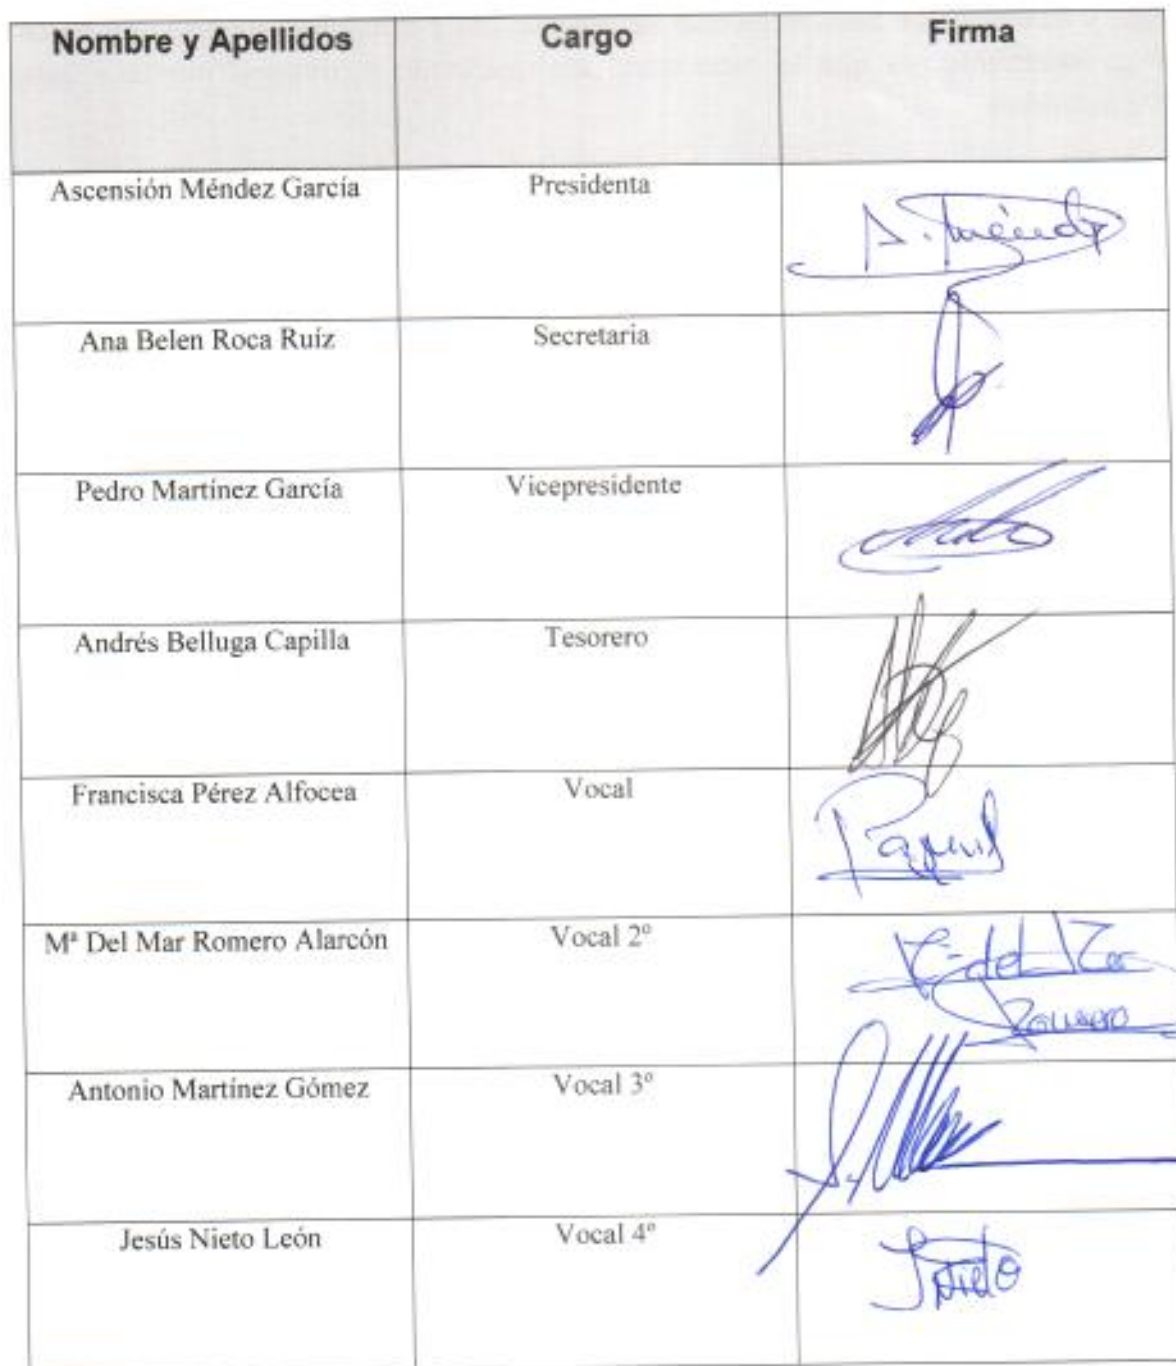 Nombre y Apellidos Cargo Firma
Ascensión Méndez García Presidenta
A. Méndez
Ana Belen Roca Ruíz Secretaria
Pedro Martínez García Vicepresidente
Andrés Belluga Capilla Tesorero
Francisca Pérez Alfocea Vocal
Mª Del Mar Romero Alarcón Vocal 2º
Romero
Antonio Martínez Gómez Vocal 3º
Jesús Nieto León Vocal 4º
J Nieto